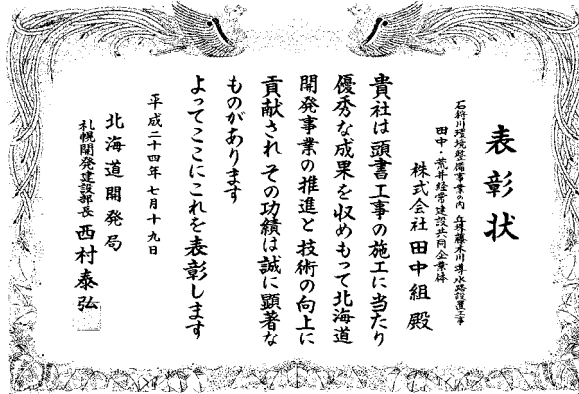 表彰状
石狩川環境整備事業の内 導水路設置工事
田中・荒井経常建設共同企業体
株式会社 田中組 殿
貴社は頭書工事の施工に当たり
優秀な成果を収めもって北海道
開発事業の推進と技術の向上に
貢献され その功績は誠に顕著な
ものがあります
よってここにこれを表彰します
平成二十四年七月十九日
北海道開発局
札幌開発建設部長 西村泰弘